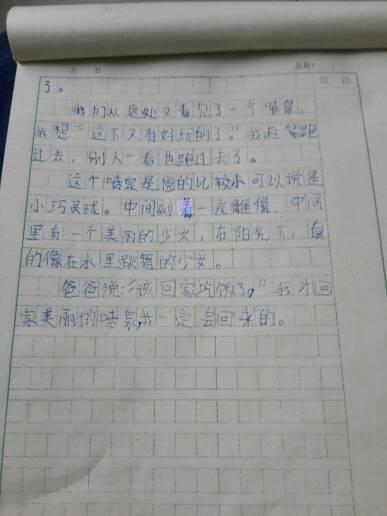 月 日
了。
我们从远处又看见了一个喷泉，
我想："这下又有好玩的了。"我赶紧跑
过去，别人一看也跑过去了。
这个喷泉是的比较小可以说是
小巧灵珑。中间刻着一座雕像，中间
里有一个美丽的少女，在阳光下，真
的像在水里跳舞的少女。
爸爸说："该回家吃饭了。"我才回
家美丽的喷泉，我一定会回来的。